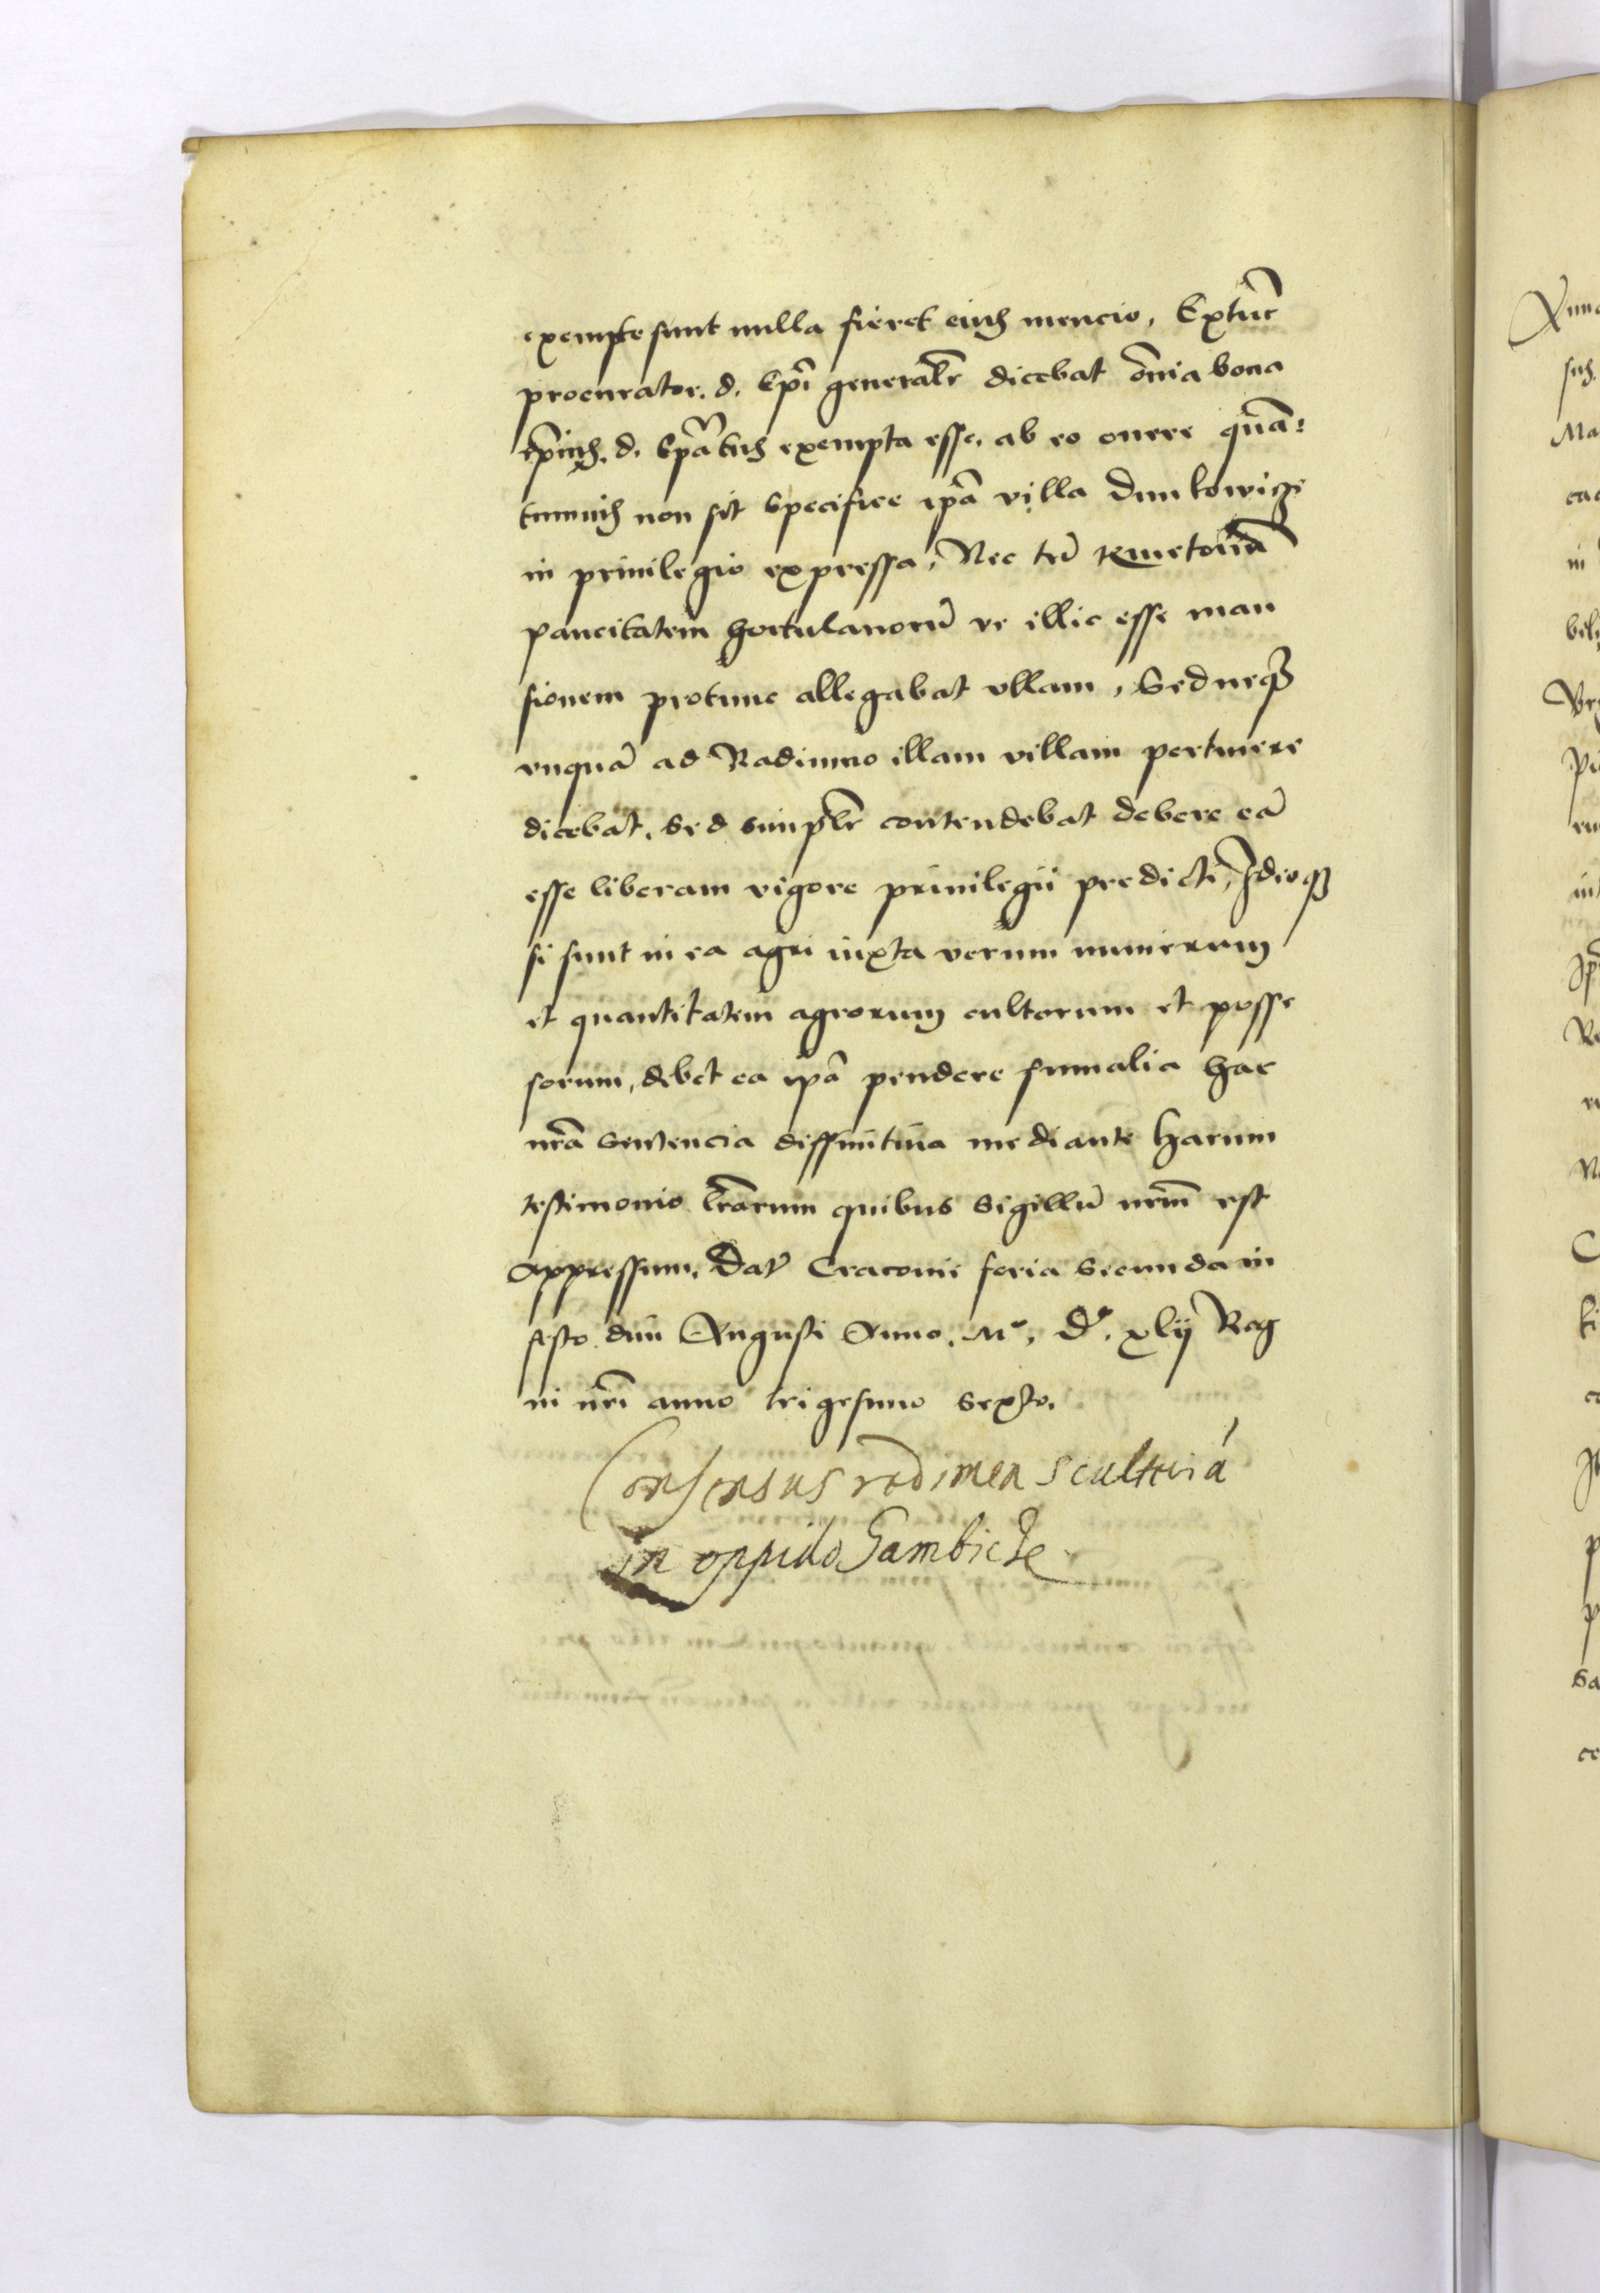 exempte sunt nulla fieret eius mencio, Extūc
procurator. d. Epī generalr̄ dicebat ōnia bona
ip̄ius. d. Ep̄atus exempta esse, ab eo onere quā:
tumuis non sit specifice ip̄a villa Dunkowicze
in priuilegio expressa, Nec tn̄ kmetonū
paucitatem hortulanorū ve illic esse man
sionem protunc allegabat vllam, Sed neq3
vnquā ad Radimno illam villam pertinere
dicebat, sed simplr̄ contendebat debere eā
esse liberam vigore priuilegii predicti, Ideoq3
si sunt in ea agri iuxta verum numerum
et quantitatem agrorum cultorum et posse
sorum, debet ea ip̄a pendere fumalia hac
nr̄a sentencia diffinitiua mediante harum
testimonio lr̄arum quibus sigillū nrm̄ est
appressum, Dat̄ Cracouie feria secunda in
festo diui Augusti Anno. Mº. Dº. xlij Reg
ni nr̄i anno trigesimo sexto.
Consensus redimen scultetiā
in oppido Gambicze